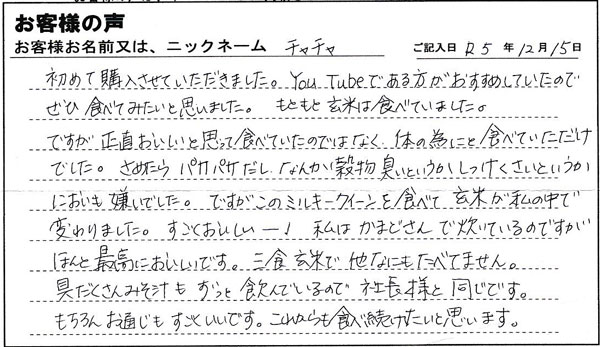 お客様の声
お客様お名前又は、ニックネーム チャチャ ご記入日 R5 年12月15日
初めて購入させていただきました。You Tubeである方がおすすめしていたので
ぜひ食べてみたいと思いました。 もともと玄米は食べていました。
ですが正直おいしいと思って食べていたのではなく 体の為にと食べていただけ
でした。さめたら パサパサだし なんか穀物臭いというかしっけくさいというか
においも嫌いでした。ですがこのミルキークイーンを食べて 玄米が私の中で
変わりました。すごくおいしいー! 私は かまどさんで炊いているのですが
ほんと最高においしいです。三食玄米で他なにもたべてません。
具だくさんみそ汁も ずっと飲んでいるので 社長様と同じです。
もちろんお通じも すごくいいです。これからも食べ続けたいと思います。